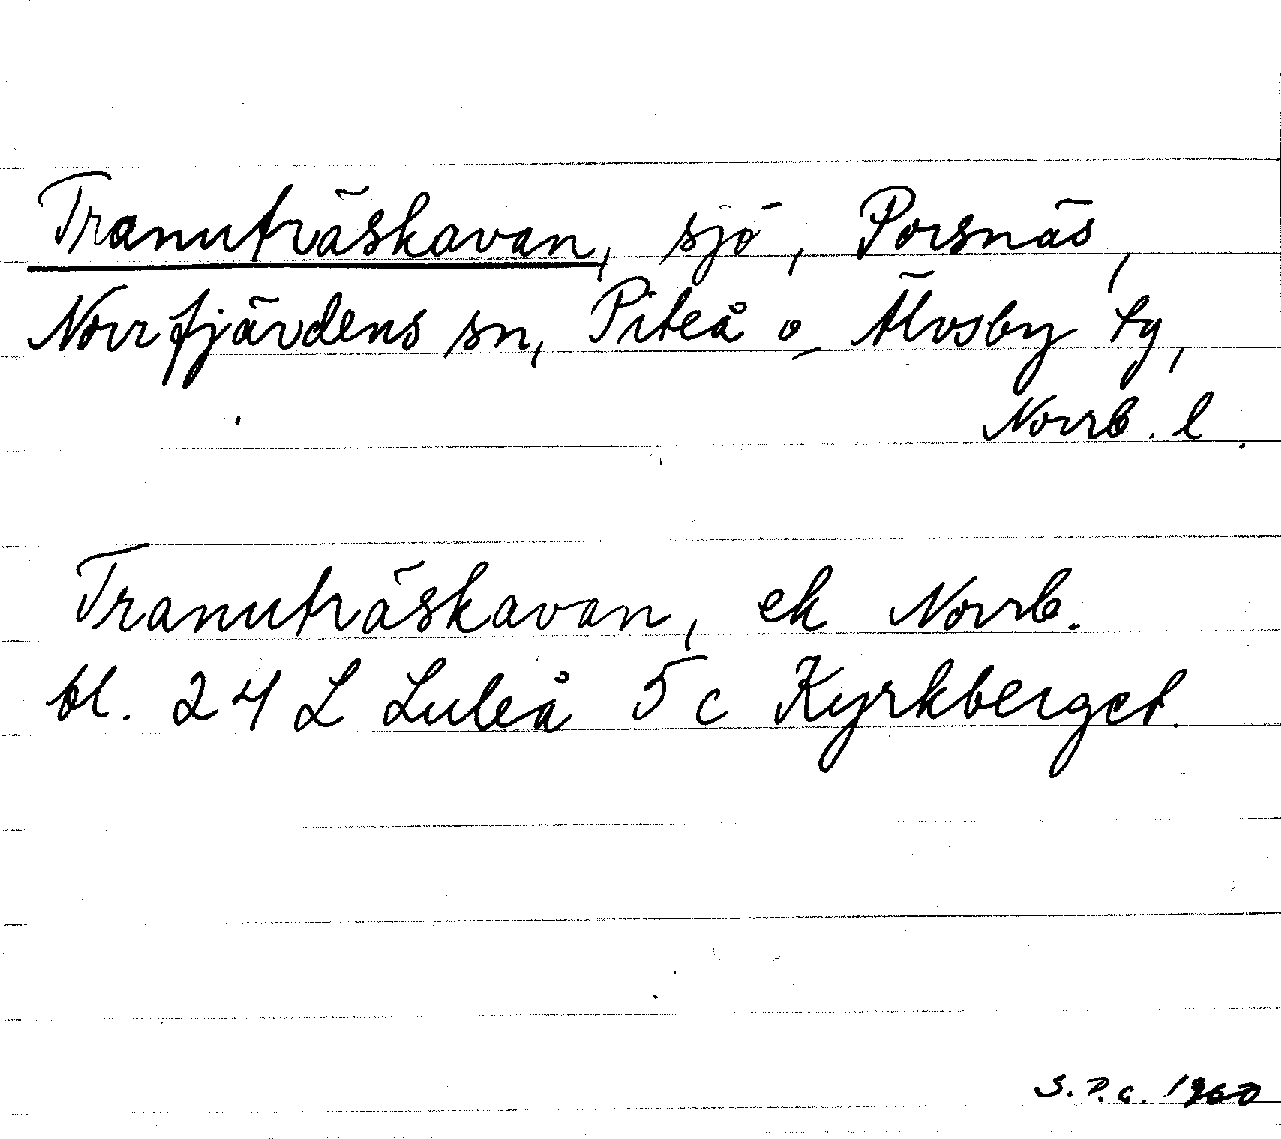 Tranuträskavan, sjö, Porsnäs,
Norrfjärdens sn, Piteå o Älvsby tg,
Norrb. l.
Tranuträskavan, ek Norrb.
bl. 24 L Luleå 5 c Kyrkberget.
S.P.c. 1960